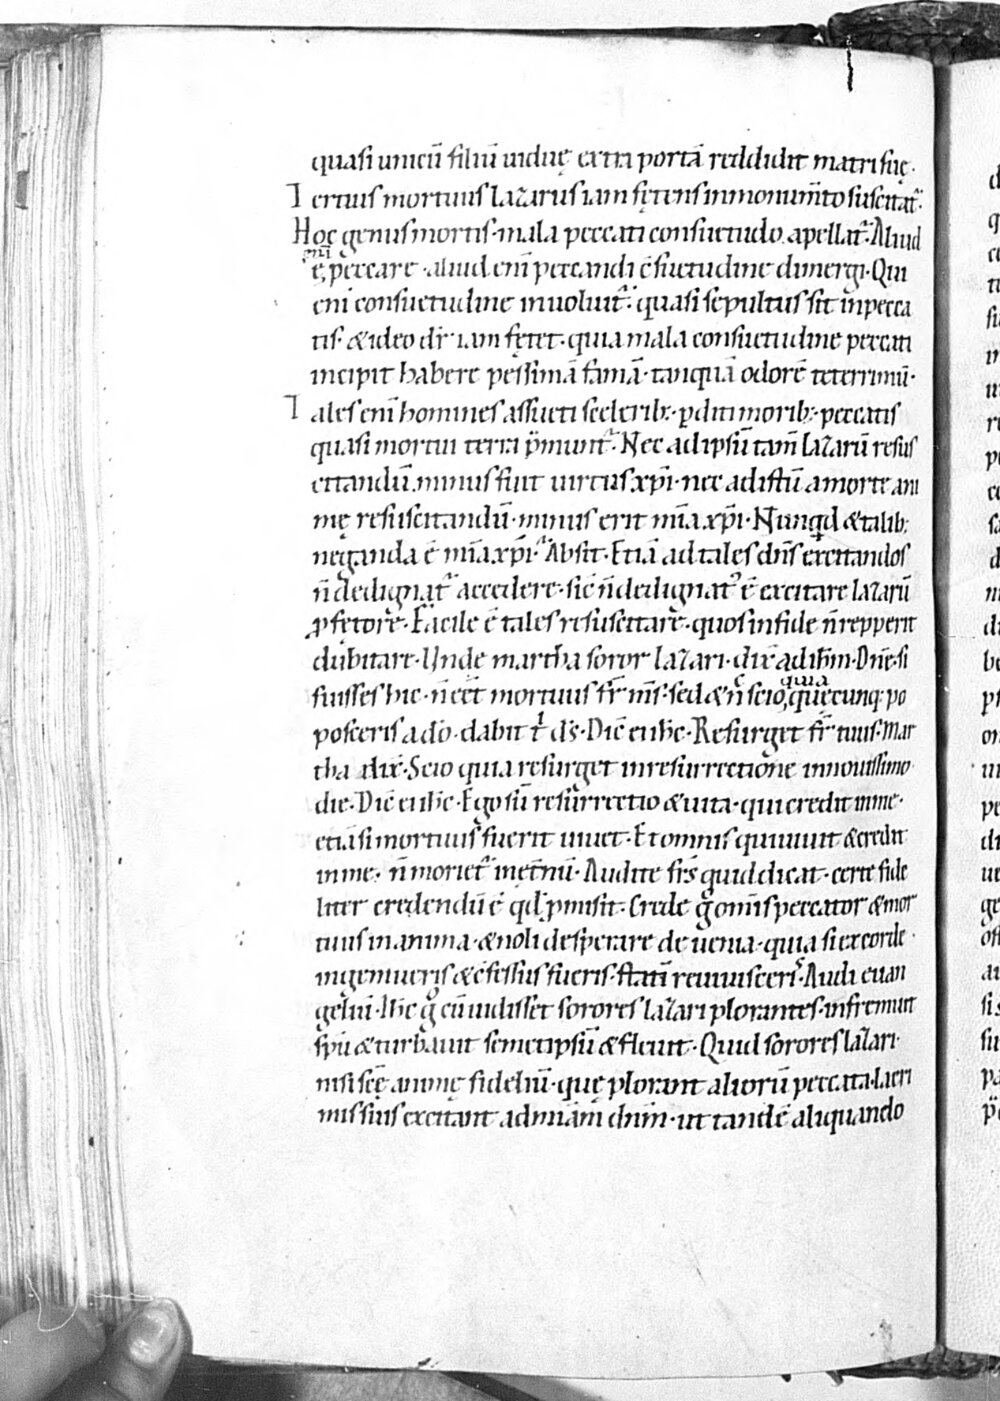 quasi unicū filiū uiduę extra portā reddidit matri suę·
Tertius mortuus lazarus iam fętens in monum̄to suscitat᷑·
Hoc genus mortis· mala peccati consuetudo apellat᷑· Aliud
eni̅
ē peccare· aliud eni̅ peccandi c̄suetudine dimergi· Qui
eni̅ consuetudine inuoluit᷑· quasi sepultus sit in pecca
tis· & ideo dr̄ iam fętet· quia mala consuetudine peccati
incipit habere pessimā famā· tanquā odorē teterrimū·
Tales eni̅ homines assueti scelerib;· ꝑditi morib;· peccatis
quasi mortui terra p̄munt᷑· Nec ad ipsū tam̄ lazarū resus
citandū· minus fuit uirtus xp̄i· nec ad istū a morte ani
mę resuscitandū· minus erit mīa xp̄i· Nunqd & talib;
neganda ē mīa xp̄i· Absit· Etiā ad tales dn̄s excitandos
n̄ dedignat᷑ accedere· sic n̄ dedignat᷑ ē excitare lazarū
ꝓ fętore· Facile ē tales resuscitare· quos in fide n̄ repperit
dubitare· Unde martha soror lazari· dix̄ ad ih̄m· Dn̄e· si
quia
fuisses hic· n̄ eēt mortuus fr̄ m̄s· sed & n̄c scio, quęcunq; po
posceris a dō· dabit t̄ ds̄· Dic̄ ei ih̄c· Resurget fr̄ tuus· Mar
tha dix̄· Scio quia resurget in resurrectione in nouissimo
die· Dic̄ ei ih̄c· Ego sū resurrectio & uita· qui credit in me·
etiā si mortuus fuerit uiuet· Et omnis qui uiuit & credit
in me· n̄ moriet᷑ in ęt̄nū· Audite frs̄ quid dicat· certe fide
liter credendū ē qd p̄misit· Crede g̊ om̄is peccator & mor
tuus in anima· & noli desperare de uenia· quia si ex corde
ingemueris & c̄fessus fueris· statī reuiuisceris· Audi euan
geliū· Ih̄c g̊ cū uidisset sorores lazari plorantes· infremuit
sp̄u & turbauit semetipsū & fleuit· Quid sorores lazari
nisi scę̄ animę fideliū· quę plorant aliorū peccata· lacri
mis suis excitant ad mīam dn̄m· ut tandē aliquando